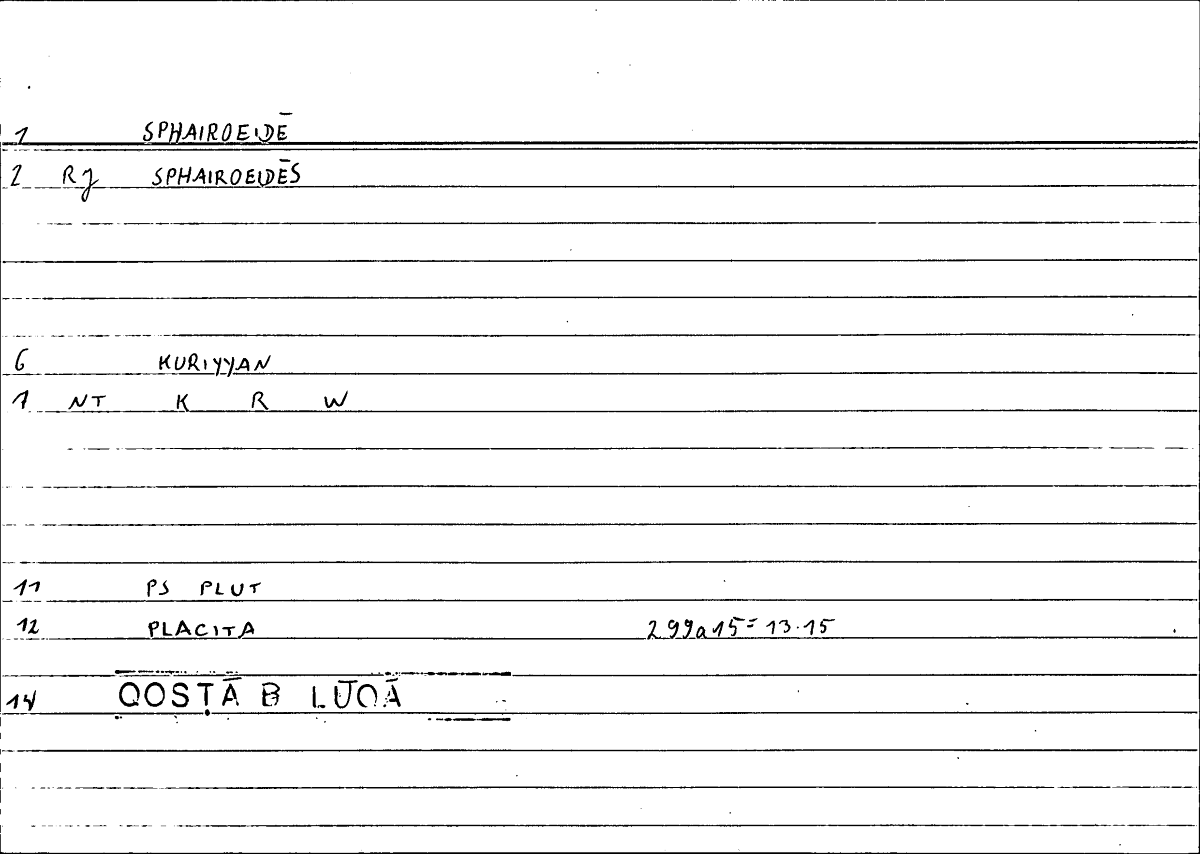 1 SPHAIROEIDĒ
2 Rj SPHAIROEIDĒS
6 KURIYYAN
1 NT K R W
11 PS PLUT
12 PLACITA 299a15=13.15
14 QOSṬĀ B LŪQĀ